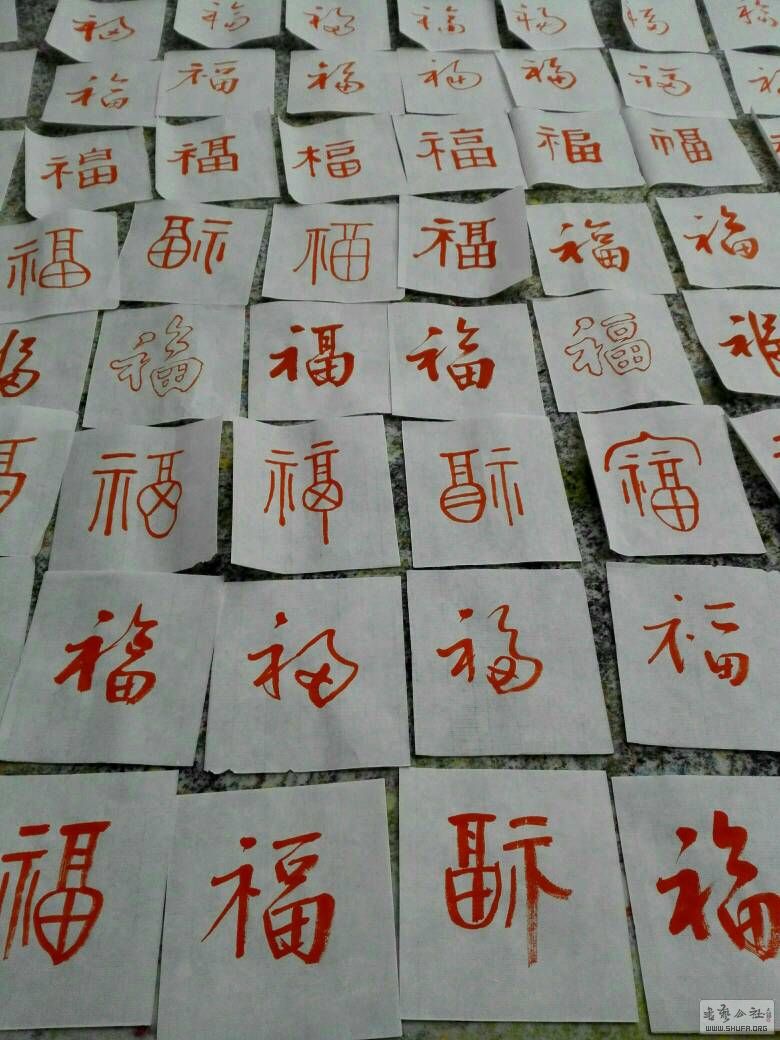 福 福 福 福 福 福 福
福 福 福 福 福 福
福 福 福 福 福 福
福 福 福 福 福 福
福 福 福 福 福 福
福 福 福 福 福
福 福 福 福
福 福 福 福
書藝公社
WWW.SHUFA.ORG